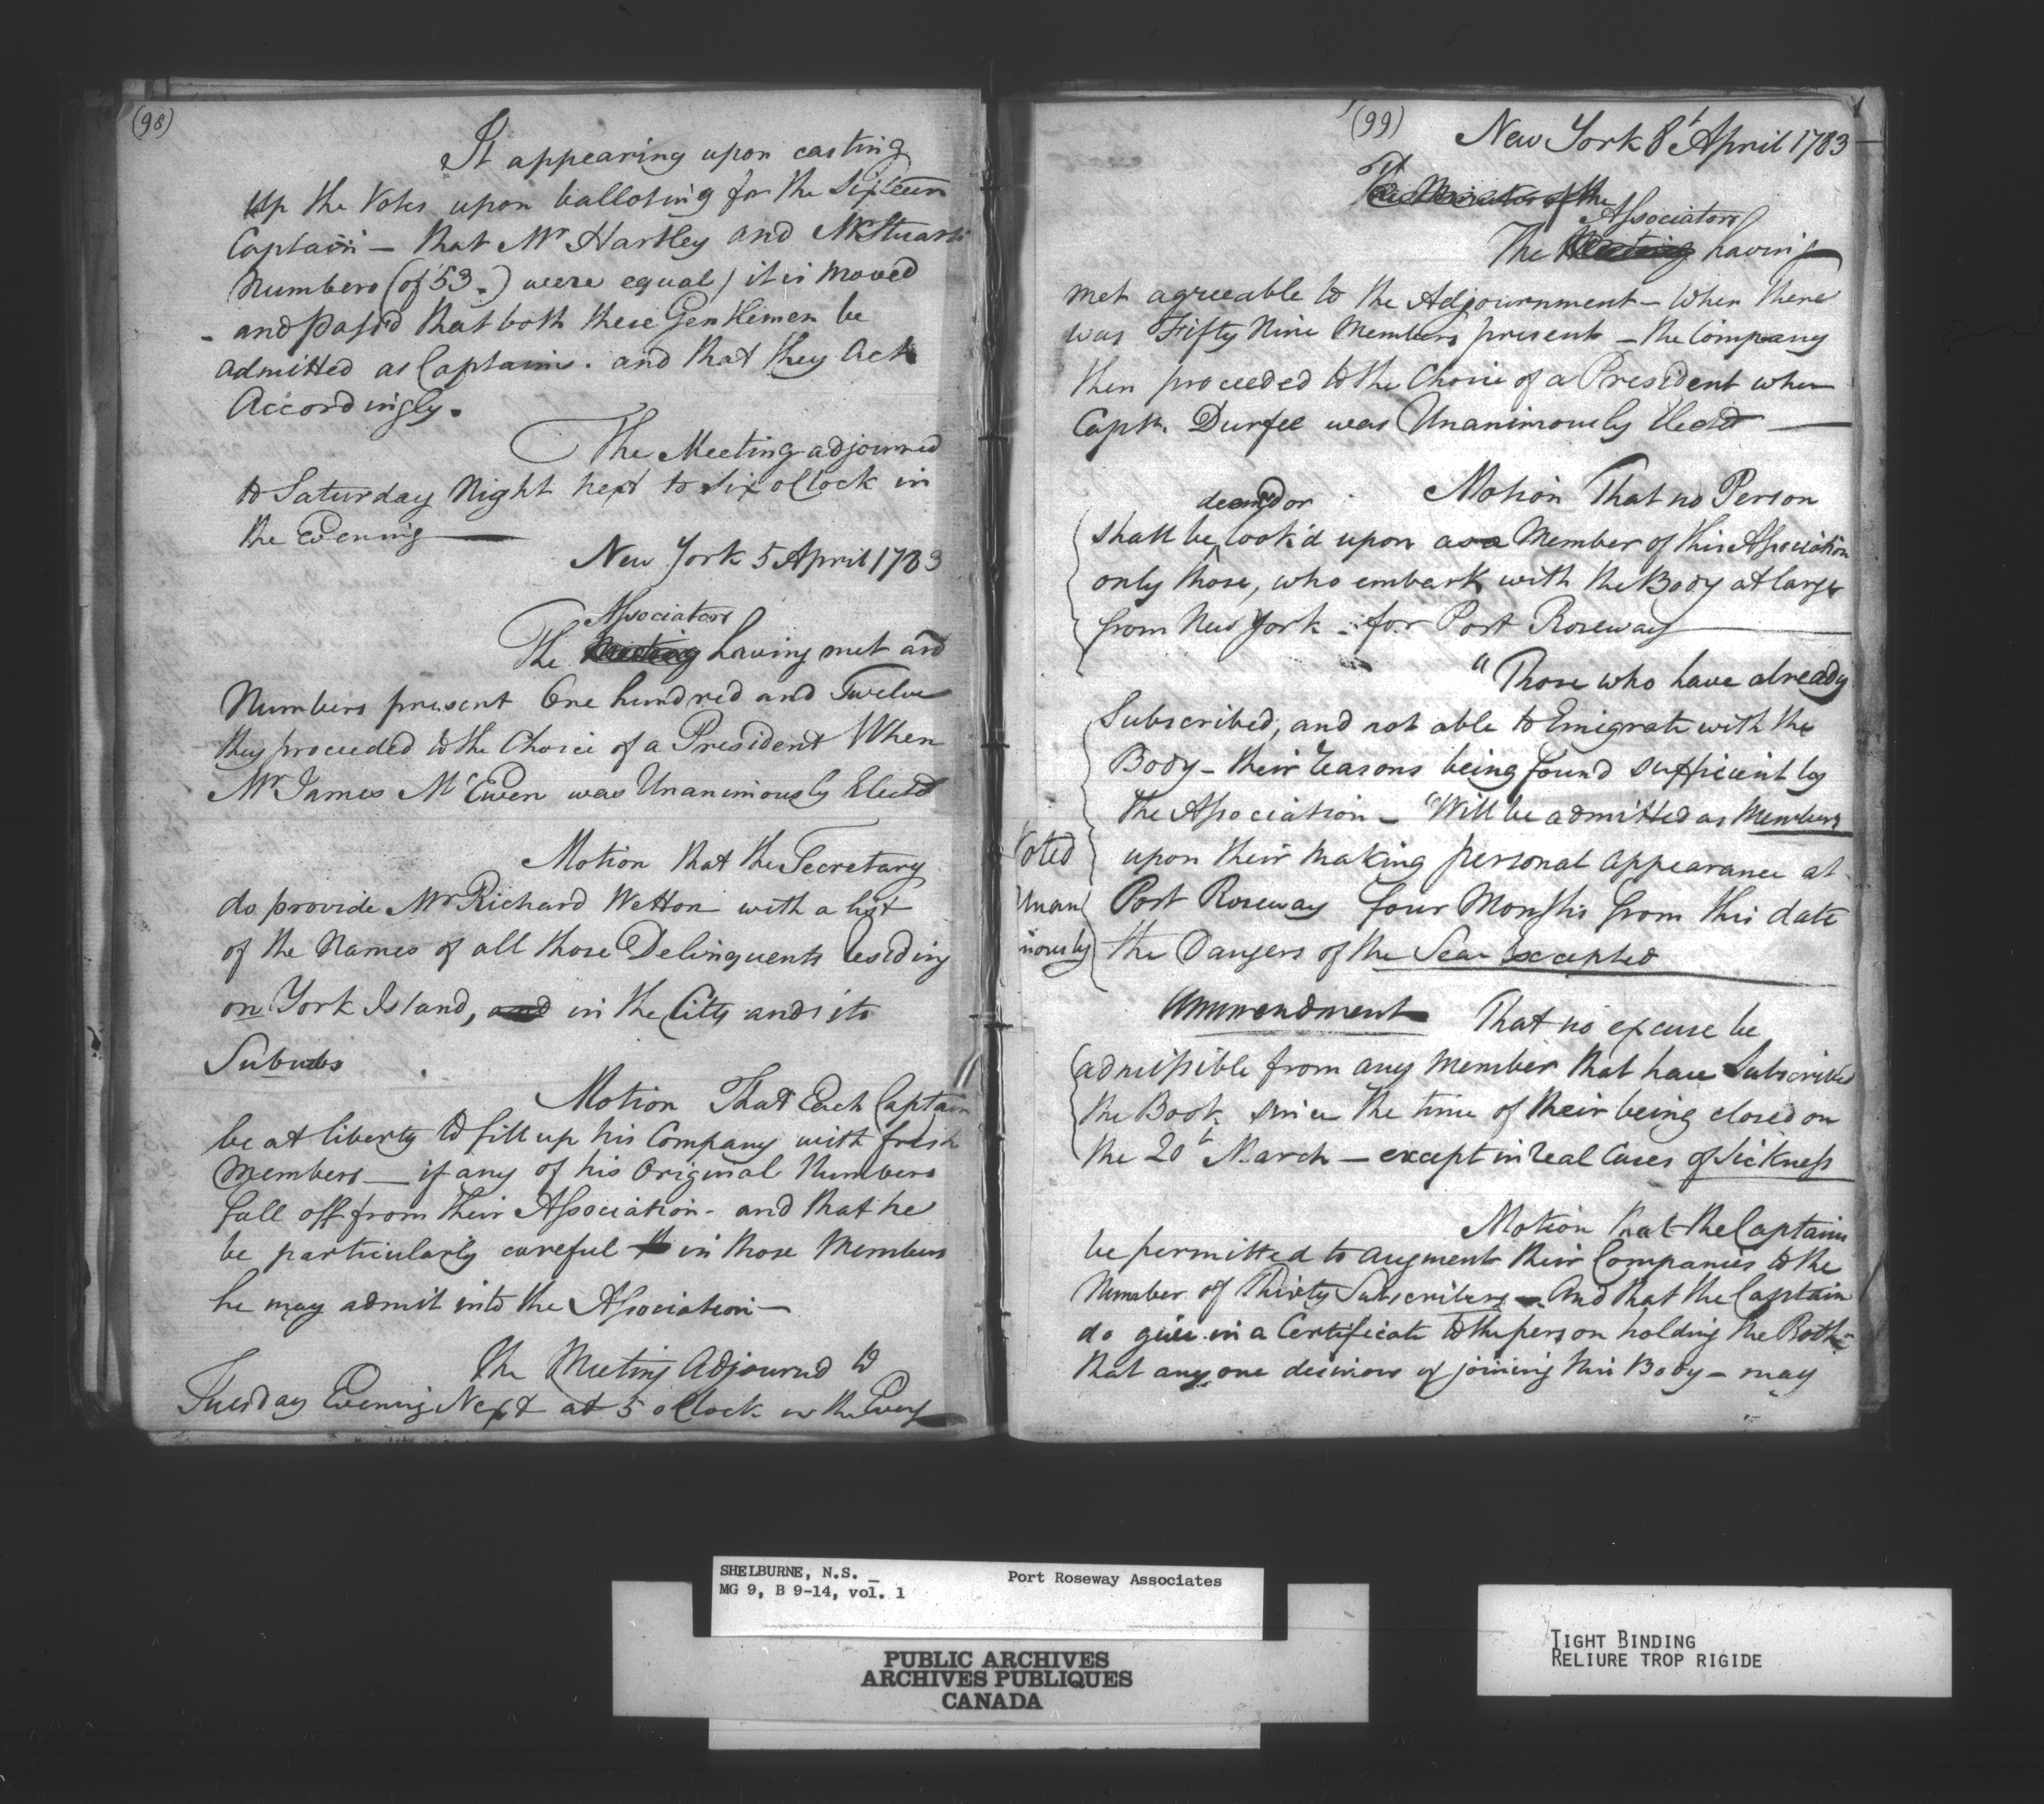 (98)
It appearing upon casting
up the Votes upon balloting for the Sixteen
Captain – that Mr Hartley and Mr Stuarts
Numbers (of 53.) were equal, it is moved
- and pass'd that both these Gentlemen be
admitted as Captains. and that they Act
Accordingly.
The Meeting adjourned
to Saturday Night next to Six oClock in
the Evening
New York 5 April 1783
Associators
The Meeting having met and
Numbers present One hundred and Twelve
they proceeded to the Choice of a President When
Mr James McEwen was Unanimously Elected
Motion that the Secretary
do provide Mr Richard Wetton with a list
of the Names of all those Delinquents Residing
on York Island, and in the City and its
Suburbs
Motion That Each Captain
be at liberty to fill up his Company with fresh
Members – if any of his Original Numbers
fall off from their Association - and that he
be particularly careful in those Members
he may admit into the Association –
The Meeting Adjourned to
Tuesday Evening Next at 5 oClock in the Eveng
(99)
New York 8t April 1783
of the
Associators
The Meeting having
met agreeable to the Adjournment – When there
was Fifty Nine Members present – the Company
then proceeded to the Choice of a President when
Captn. Durfee was Unanimously Elected
Motion That no Person
deem'd or
shall be look'd upon as a Member of this Association
only those, who embark with the Body at large
from New York - for Port Roseway
"Those who have already
Subscribed, and not able to Emigrate with the
Body – their reasons being found sufficient by
the Association – "Will be admitted as Members
upon their making personal appearance at
Port Roseway four Months from this date
the Dangers of the Seas Excepted
Voted
Unan
imously
Ammendment That no excuse be
admissible from any Member that have Subscribed
the Book since the time of their being closed on
the 20t March – except in real Cases of Sickness
Motion that the Captains
be permitted to augment their Companies to the
Number of Thirty Subscribers – And that the Captain
do give in a Certificate to the person holding the Book
that any one desirous of joining this Body – may
SHELBURNE, N.S. _
Port Roseway Associates
MG 9, B 9-14, vol. 1
PUBLIC ARCHIVES
ARCHIVES PUBLIQUES
CANADA
TIGHT BINDING
RELIURE TROP RIGIDE